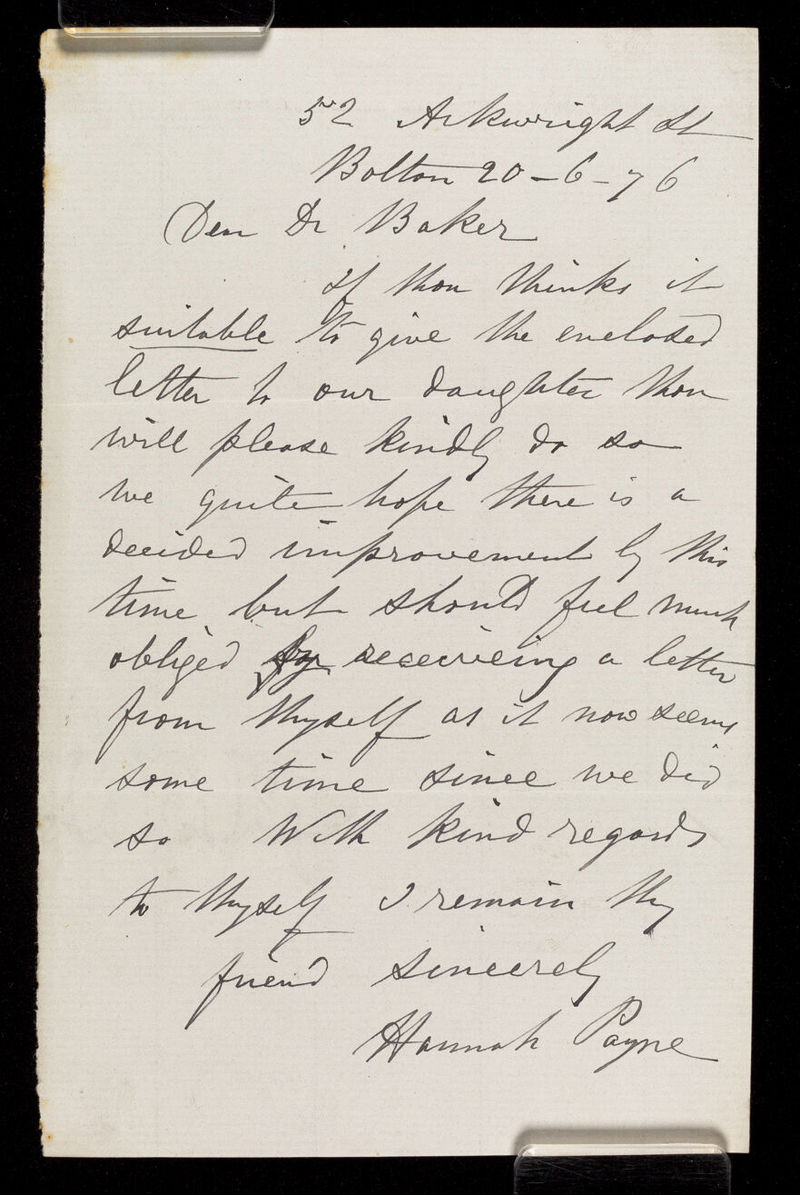 52 Arkwright St
Bolton 20-6-76
Dear Dr Baker
If thou thinks it
suitable to give the enclosed
letter to our daughter thou
will please kindly do so
we quite hope there is a
decided improvement by this
time but should feel much
obliged by receiveing a letter
from thyself as it now seems
some time since we did
so With kind regards
to thyself I remain thy
friend sincerely
Hannah Payne